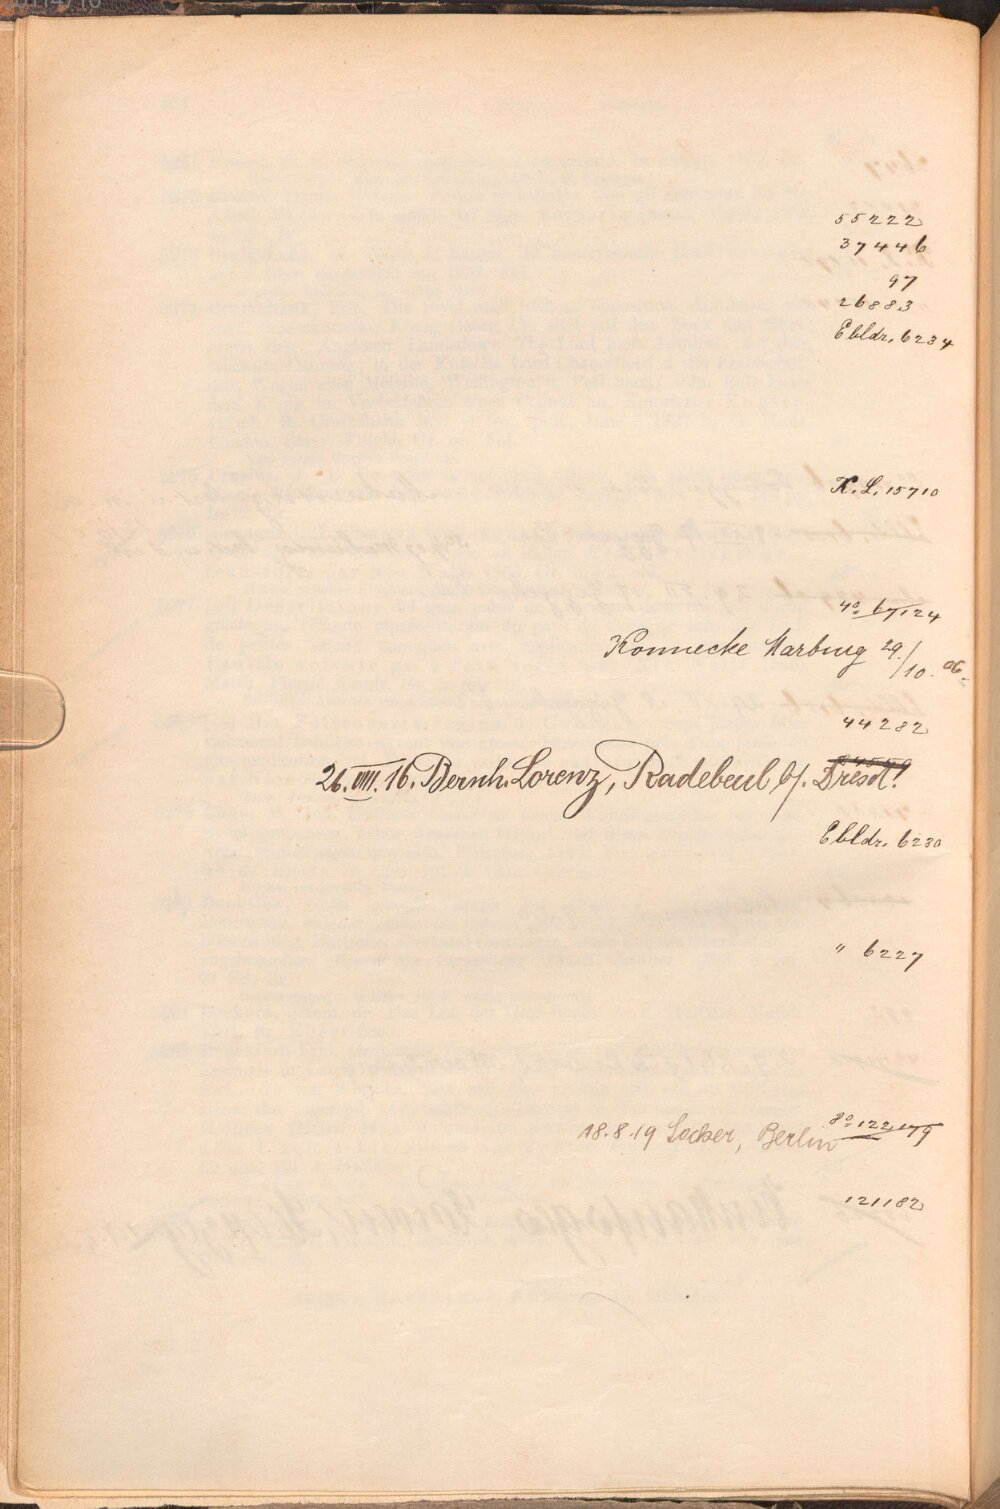 55222
37446
97
26883
Ebldr. 6234
K. L. 15710
4° 67124
Könnecke Marburg 29./10. 06.
44282
26. VIII. 16. Bernh. Lorenz, Radebeul b/. Dresd!
Ebldr. 6230
" 6227
8° 122179
18.8.19 Locker, Berlin
121182